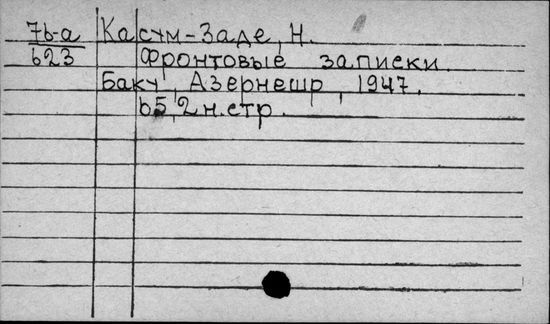 76-а Касум-Заде, Н.
623 Фронтовые записки.
Баку, Азернешр, 1947.
65, 2 н. стр.